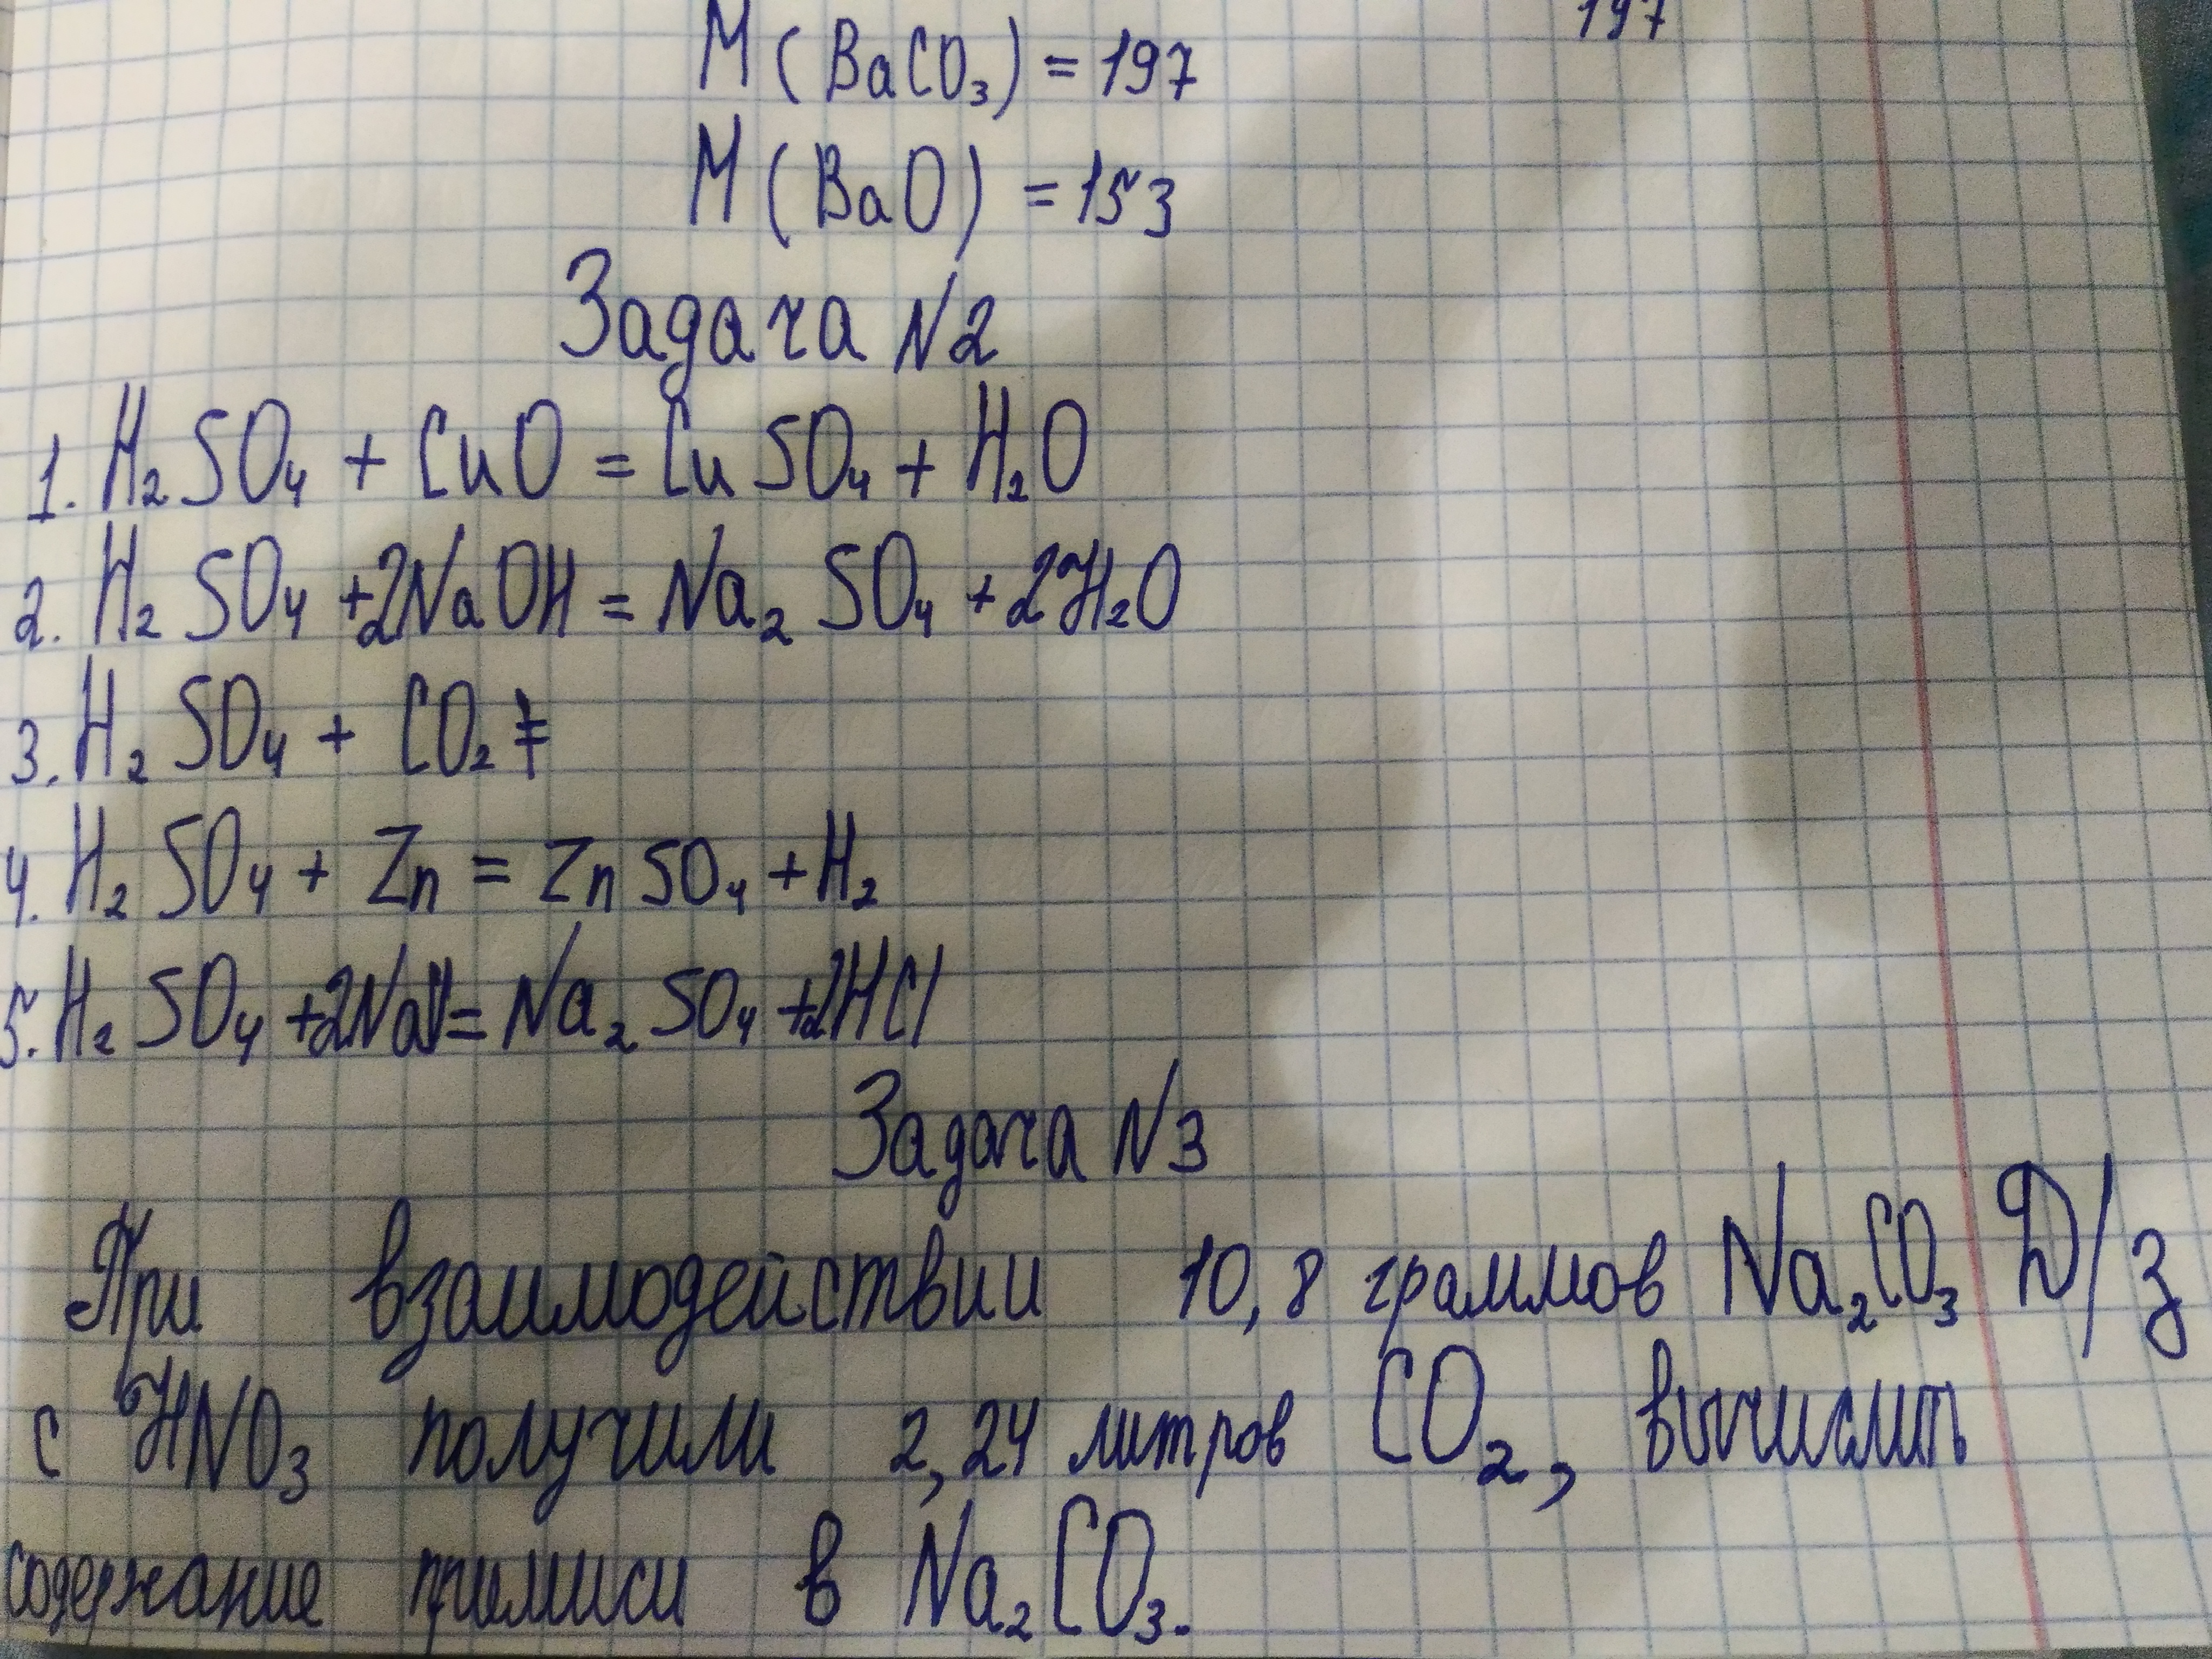 197
M (BaCO₃) = 197
M (BaO) = 153
Задача N2
1. H₂SO₄ + CuO = CuSO₄ + H₂O
2. H₂SO₄ +2NaOH = Na₂SO₄ + 2H₂O
3. H₂SO₄ + CO₂ ≠
4. H₂SO₄ + Zn = ZnSO₄ + H₂
5. H₂SO₄ +2Na = Na₂SO₄ +2HCl
Задача N3
При взаимодействии 10,8 граммов Na₂CO₃ Д/з
с HNO₃ получили 2,24 литров CO₂, вычислить
содержание примиси в Na₂CO₃.